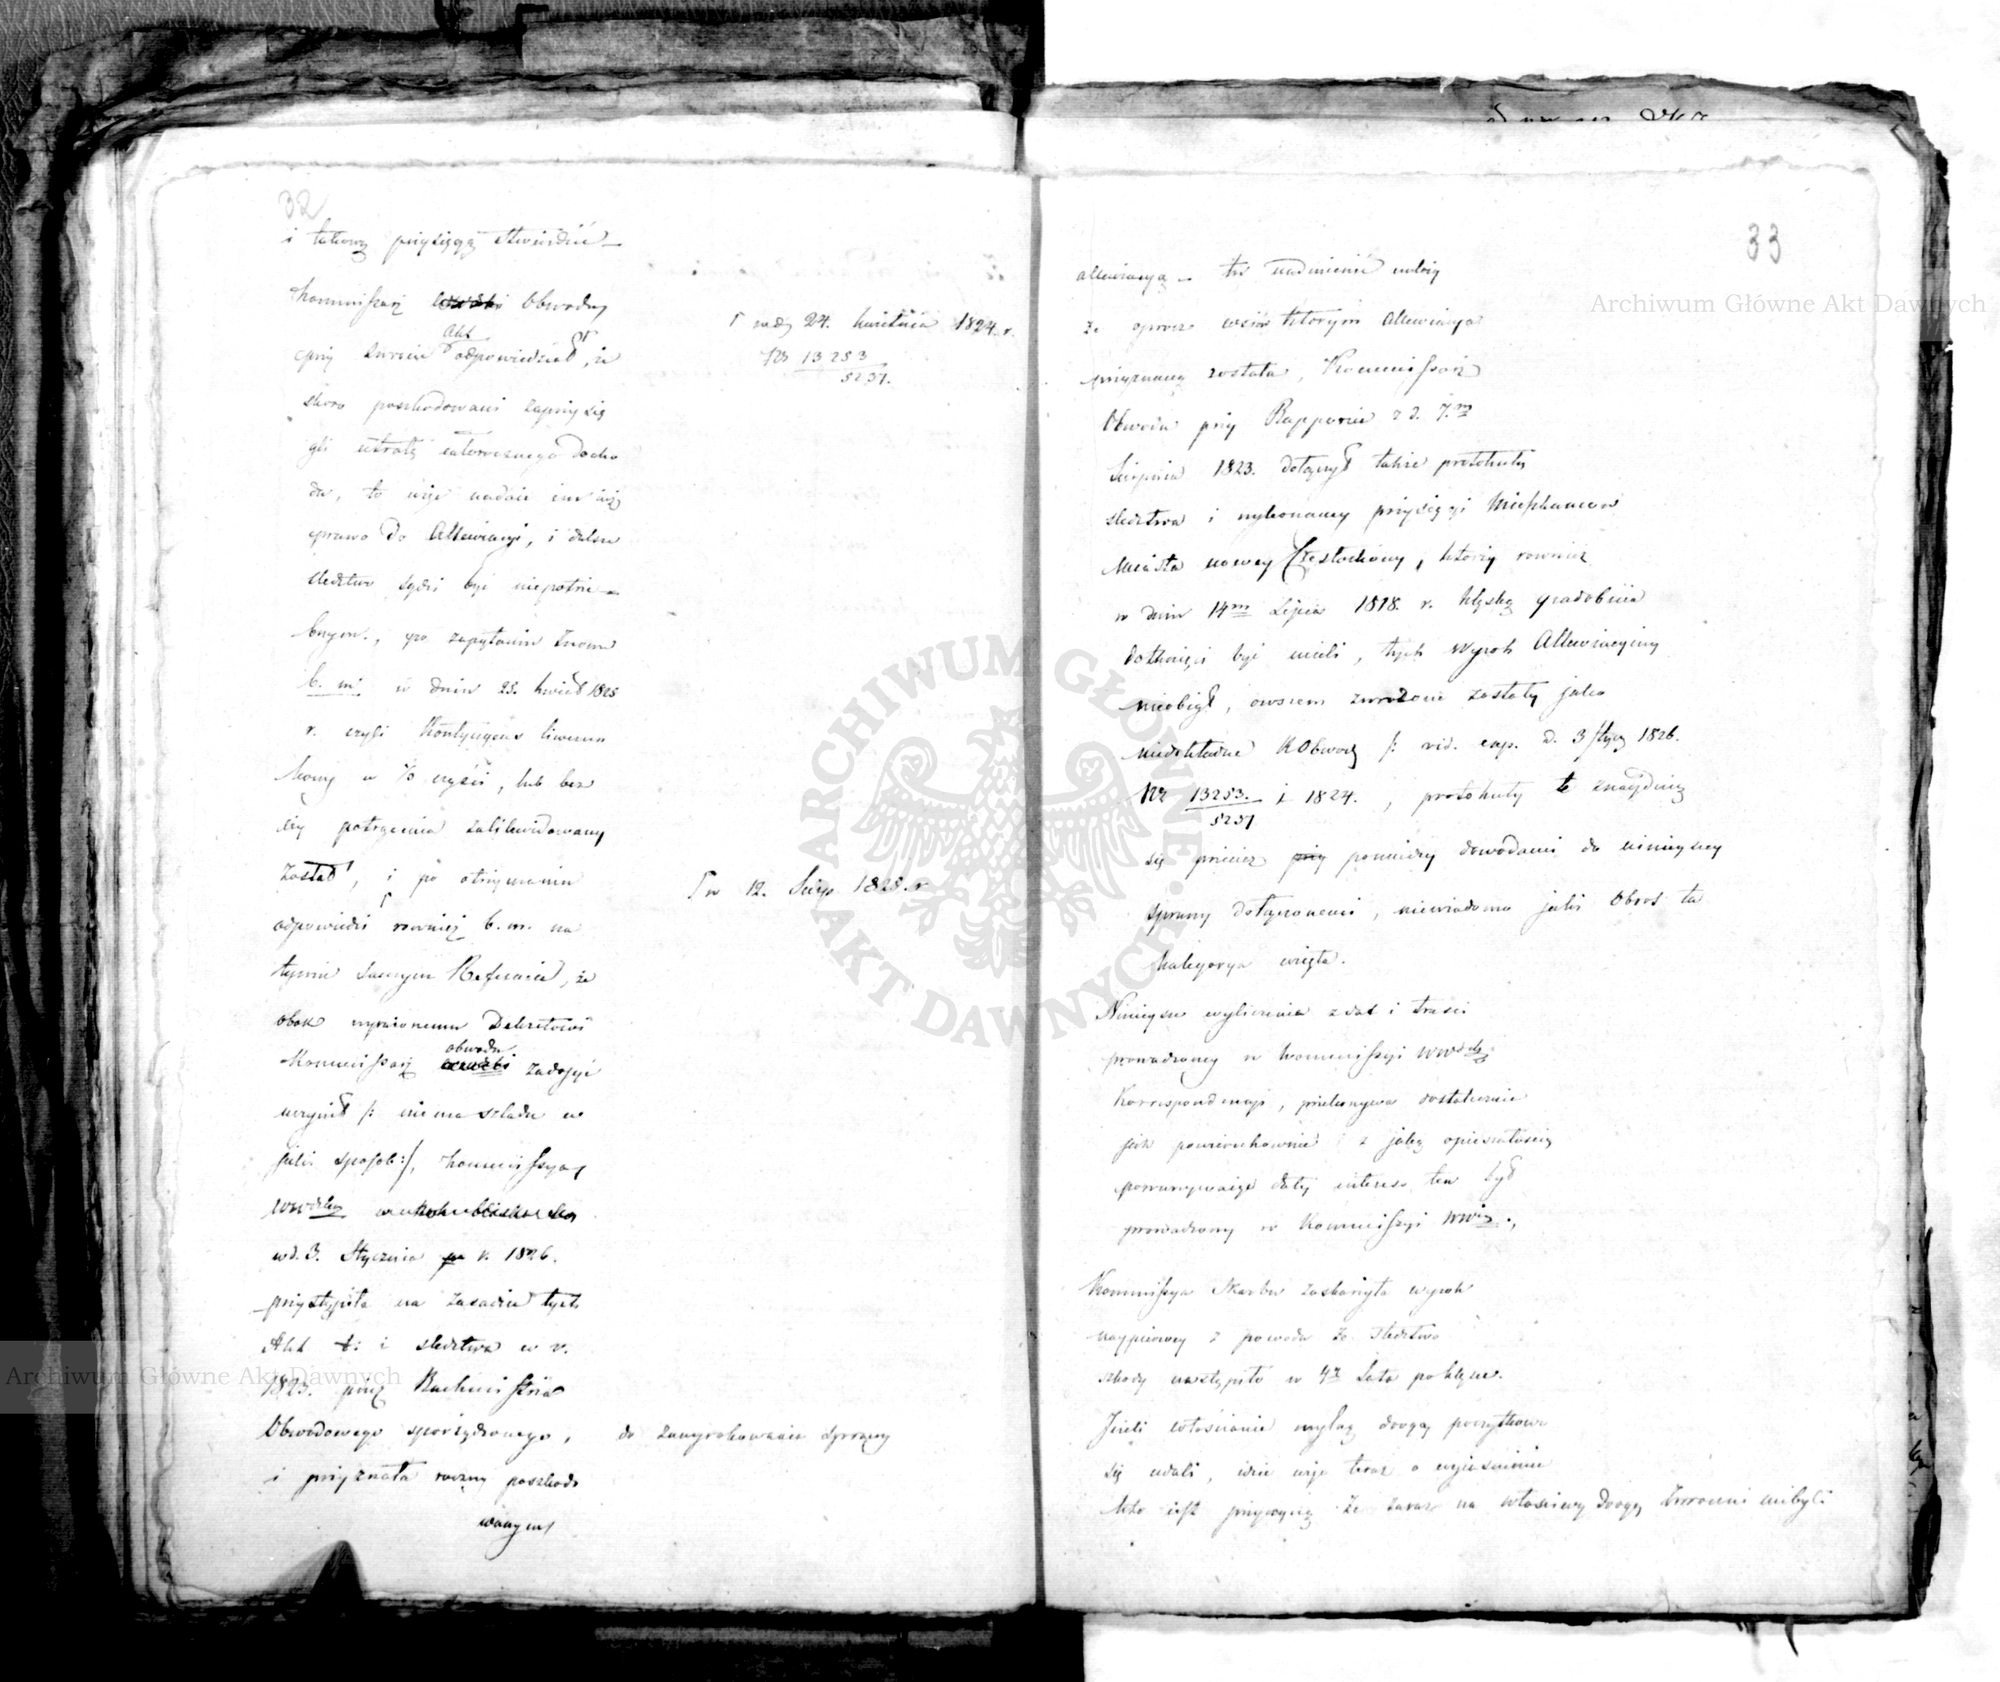 32
i takową przysięgą stwierdzić
Kommissarz Obwodu
Akt
przy zwrocie odpowiedział, że
skoro poszkodowani zaprzysię
gli utratę całorocznego docho
du, to więc nadaie im iuż
prawo do Allewiacyi, i dalsze
śledztwo sądzi być niepotrze-
bnym, po zapytaniu znowu
b. m. w dniu 25. kwiet 1825
r. czyli Kontyngens liwerun
kowy w części, lub bez
tey potrącenia zalikwidowany
został, i po otrzymaniu
odpowiedzi rownież b. m. na
tymże samym Referacie, że
obok wyrażonemu Dekretowi
obwodu
Kommissarz zadosyć
uczynił /: nie ma szladu w
jaki sposob :/, Kommissya
WWdzka
w d. 3. Stycznia r. 1826.
przystąpiła na zasadzie tych
Akt i śledztwa w r.
1823. przez Kommissarza
Obwodowego sporządzonego,
i przyznała roczną poszkodo
wanym
Γ w d. 24. kwietnia 1824 r.
Nr 13253
5237.
Γ w 12. Sierp. 1825. r
do zawyrokowania sprawy
33
allewiacyą – tu nadmienić należy
że oprocz wsiow ktorym Allewiacya
przyznaną została, Kommissarz
Obwodu przy Rapporcie z d. 7.m
Sierpnia 1823. dołączył także protokuły
śledztwa i wykonaney przysięgi Mieszkancow
Miasta nowey Częstochowy, ktorzy rownież
w dniu 14m Lipca 1818. r. klęską gradobicia
dotknięci być mieli, tych wyrok Allewiacyiny
nieobiął, owszem zwrocone zostały jako
niedokładne KObwod /: vid. exp. d. 3 stycz 1826.
Nr 13253. z 1824., protokuły te znayduią
5237
się przecież pomiędzy dowodami do ninieyszey
sprawy dołączonemi, niewiadomo jaki Obrot ta
kategorya wzięła.
Ninieysze wyliczenie z dat i treści
prowadzoney w Kommissyi WWdzkiey
Korrespondencyi, przekonywa dostatecznie
jak powierzchownie i z jaką opieszałością
porownywaiąc daty interess ten był
prowadzony w Kommissyi WWiey.,
Kommissya Skarbu zaskarżyła wyrok
naypierwey z powodu że śledztwo
szkody nastąpiło w 4ry lata po klęsce.
Jeżeli włościanie mylną drogą początkowo
się udali, idzie więc teraz o wyiaśnienie
kto iest przyczyną że zaraz na właściwą drogę zwroceni niebyli